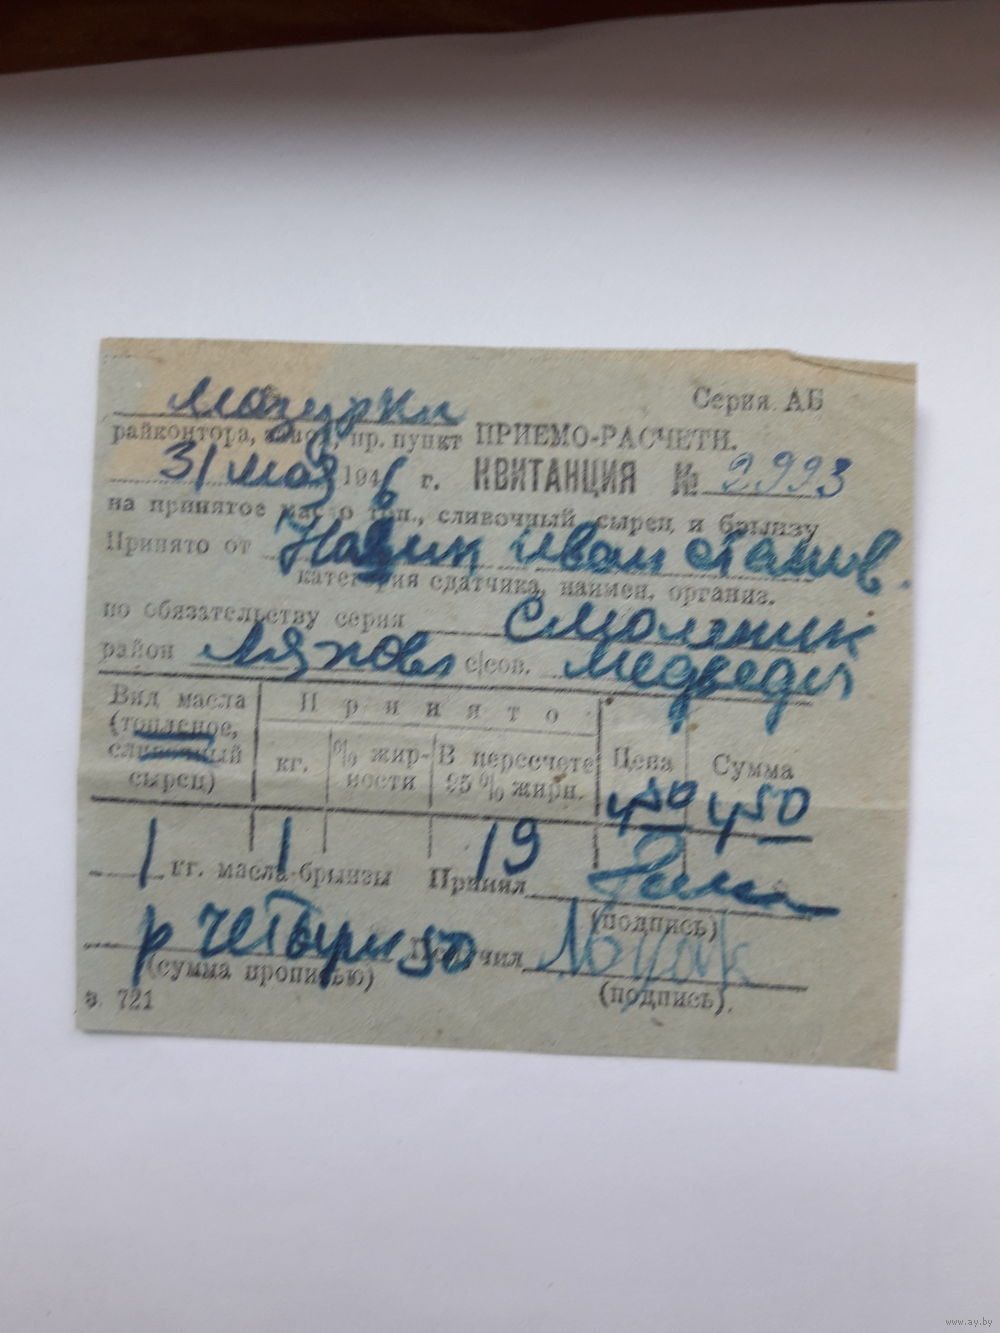 Серия АБ
Мазурки
райконтора, завод, пр. пункт ПРИЕМО-РАСЧЕТН.
31 мая 1946 г. КВИТАНЦИЯ № 2993
на принятое масло топ., сливочный, сырец и брынзу
Принято от Новик Иван
категория сдатчика, наимен. организ.
по обязательству серия
район с|сов. Медведи
Вид масла (топленое, сливочный сырец)
Принято
кг.
% жирности
В пересчете 95% жирн.
Цена
Сумма
450 450
1 1 19
кг. масла-брынзы Принял
(подпись)
р четыри 50 Получил
(сумма прописью) (подпись).
з. 721
www.ay.by